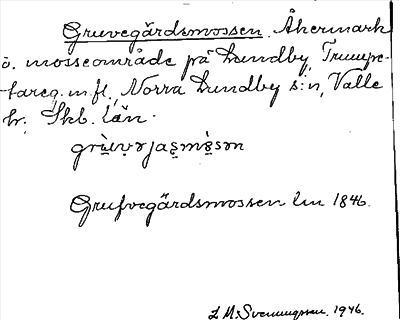 Gruvegärdsmossen. Åkermark
o. mosseområde på Lundby Trumpe-
tareg. m. fl., Norra Lundby s:n, Valle
hr, Skb. län.
Grufvegärdsmossen Lm 1846.
L. M. Svenungsson. 1946.